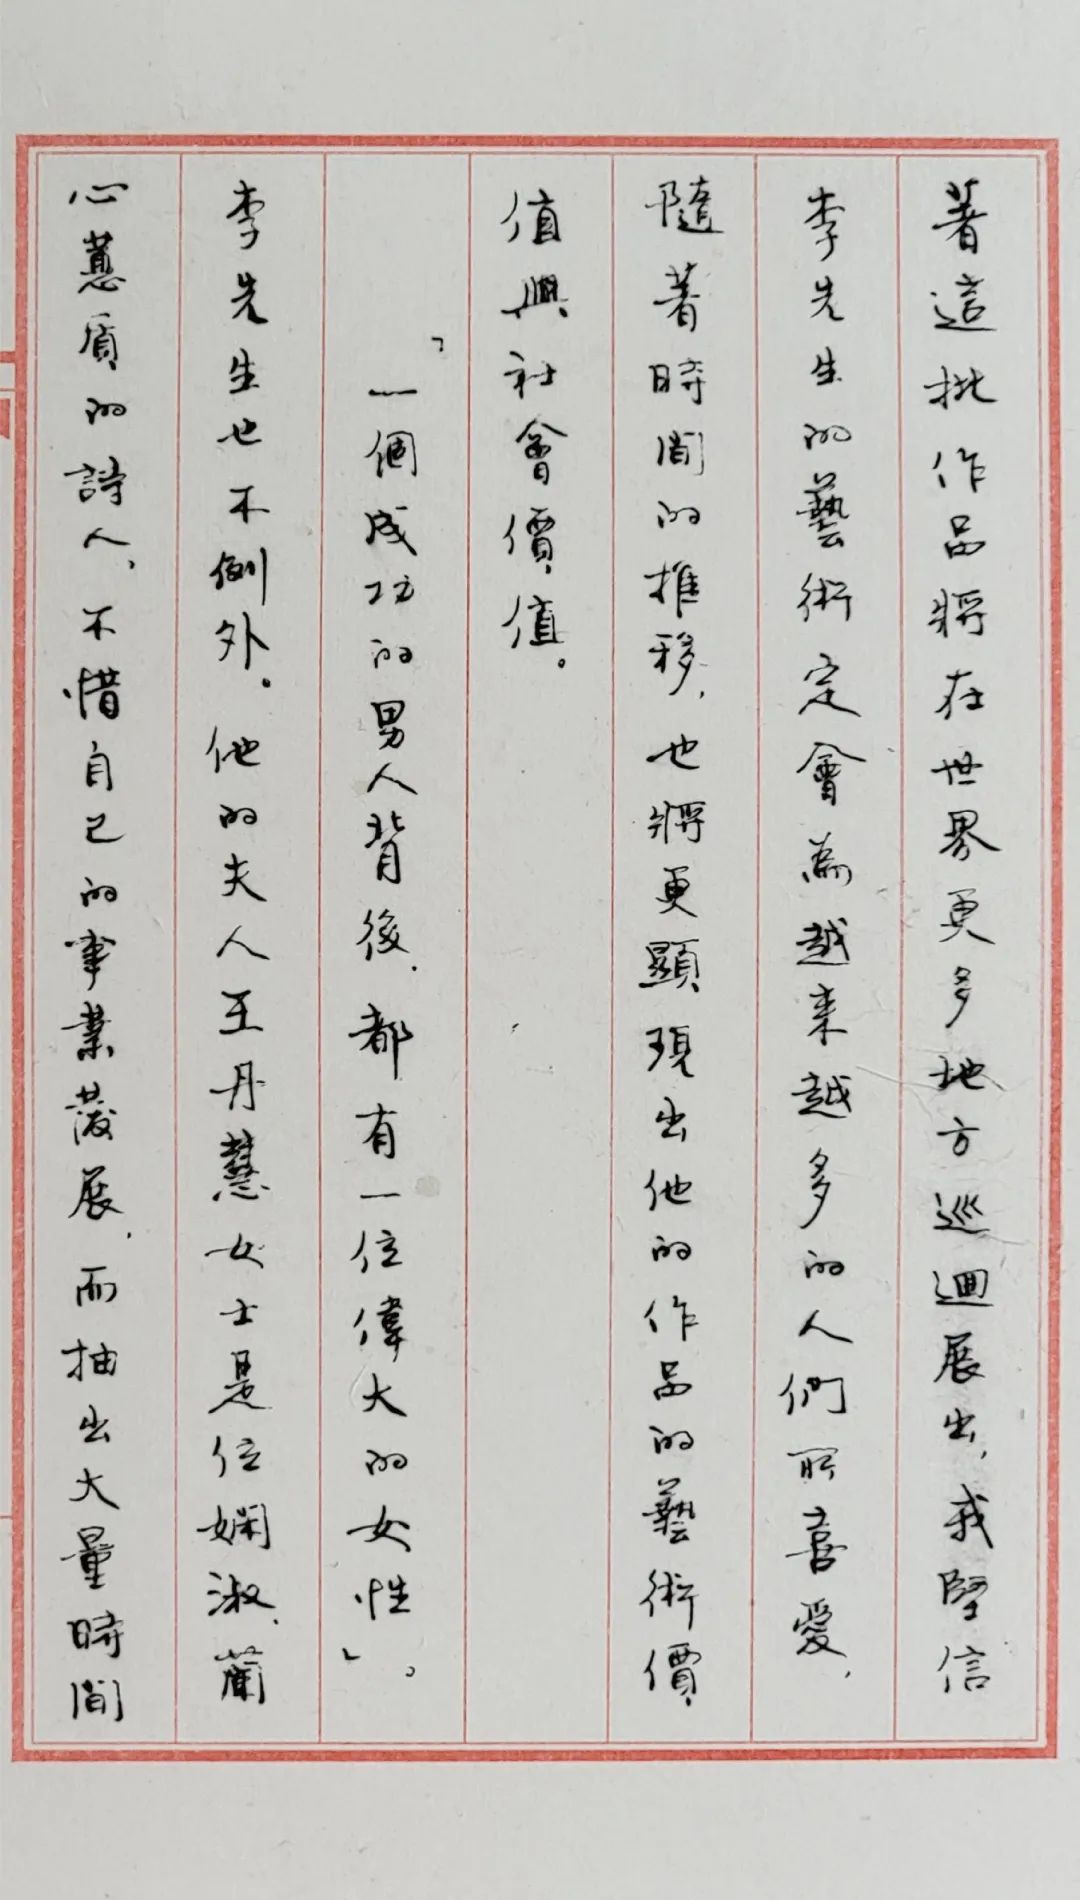 著這批作品將在世界更多地方巡迴展出，我堅信
李先生的藝術定會為越来越多的人們所喜愛，
隨著時間的推移，也將更顯現出他的作品的藝術價
值與社會價值。
「一個成功的男人背後，都有一位偉大的女性」。
李先生也不例外。他的夫人王丹慧女士是位嫻淑、蘭
心蕙質的詩人，不惜自己的事業發展，而抽出大量時間